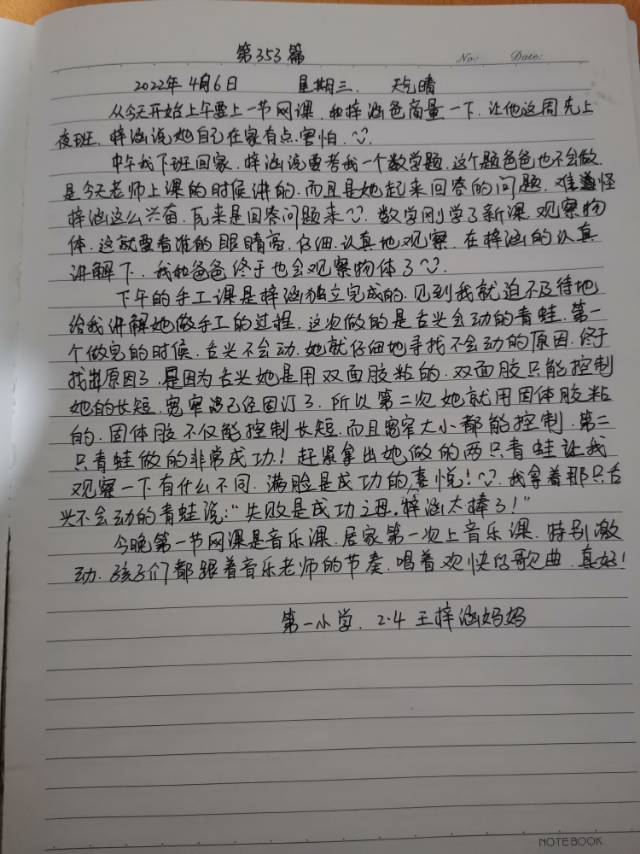 第353篇
No: Date:
2022年4月6日 星期三. 天气晴
从今天开始上午要上一节网课. 和梓涵爸商量一下. 让他这周先上
夜班. 梓涵说她自己在家有点害怕.
中午我下班回家. 梓涵说要考我一个数学题. 这个题爸爸也不会做.
是今天老师上课的时候讲的. 而且是她起来回答的问题. 难道怪
梓涵这么兴奋. 瓦来是回答问题来. 数学刚学了新课. 观察物
体. 这就要看谁的眼睛亮. 仔细. 认真地观察. 在梓涵的认真
讲解下. 我和爸爸终于也会观察物体了
下午的手工课是梓涵独立完成的. 见到我就迫不及待地
给我讲解她做手工的过程. 这次做的是舌头会动的青蛙. 第一
个做完的时候. 舌头不会动. 她就仔细地寻找不会动的原因. 终于
找出原因了. 是因为舌头她是用双面胶粘的. 双面胶只能控制
她的长短. 宽窄已经固订了. 所以第二次她就用固体胶粘
的. 固体胶不仅能控制长短. 而且宽窄大小都能控制. 第二
只青蛙做的非常成功! 赶紧拿出她做的两只青蛙让我
观察一下有什么不同. 满脸是成功的喜悦! 我拿着那只舌
头不会动的青蛙说:"失败是成功之母. 梓涵太棒了!"
今晚第一节网课是音乐课. 居家第一次上音乐课. 特别激
动. 孩子们都跟着音乐老师的节奏. 唱着欢快的歌曲. 真好!
第一小学. 2.4 王梓涵妈妈
NOTEBOOK